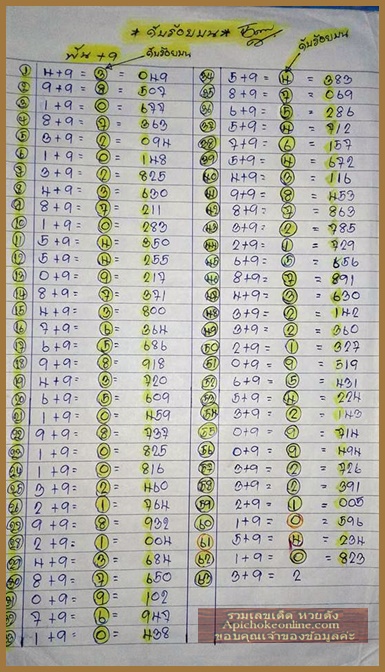 * ดับร้อยบน *
พัน +9
ดับร้อยบน
ดับร้อยบน
1 4+9 = 3 = 049
2 9+9 = 8 = 507
3 1+9 = 0 = 677
4 8+9 = 7 = 363
5 3+9 = 2 = 094
6 1+9 = 0 = 148
7 3+9 = 2 = 825
8 4+9 = 3 = 630
9 8+9 = 7 = 211
10 1+9 = 0 = 283
11 5+9 = 4 = 350
12 5+9 = 4 = 255
13 0+9 = 9 = 217
14 8+9 = 7 = 371
15 4+9 = 3 = 800
16 7+9 = 6 = 364
17 6+9 = 5 = 686
18 9+9 = 8 = 918
19 4+9 = 3 = 720
20 6+9 = 5 = 609
21 1+9 = 0 = 459
22 9+9 = 8 = 737
23 1+9 = 0 = 825
24 1+9 = 0 = 816
25 3+9 = 2 = 460
26 2+9 = 1 = 764
9+9 = 8 = 932
28 2+9 = 1 = 004
29 4+9 = 3 = 684
30 8+9 = 7 = 650
0+9 = 9 = 102
7+9 = 6 = 947
1+9 = 0 = 438
34 5+9 = 4 = 383
35 8+9 = 7 = 069
6+9 = 5 = 286
5+9 = 4 = 712
38 7+9 = 6 = 157
39 5+9 = 4 = 672
40 4+9 = 3 = 116
41 9+9 = 8 = 453
42 8+9 = 7 = 863
43 3+9 = 2 = 785
44 2+9 = 1 = 729
45 6+9 = 5 = 656
46 8+9 = 7 = 891
4+9 = 3 = 630
48 3+9 = 2 = 142
49 3+9 = 2 = 360
50 2+9 = 1 = 327
51 0+9 = 9 = 519
52 6+9 = 5 = 431
53 5+9 = 4 = 224
54 3+9 = 2 = 143
55 0+9 = 9 = 714
56 0+9 = 9 = 494
3+9 = 2 = 726
58 3+9 = 2 = 391
59 2+9 = 1 = 005
60 1+9 = 0 = 596
61 5+9 = 4 = 234
62 1+9 = 0 = 823
63 3+9 = 2
รวมเลขเด็ด หวยดัง
Apichokeonline.com
ขอบคุณเจ้าของข้อมูลค่ะ